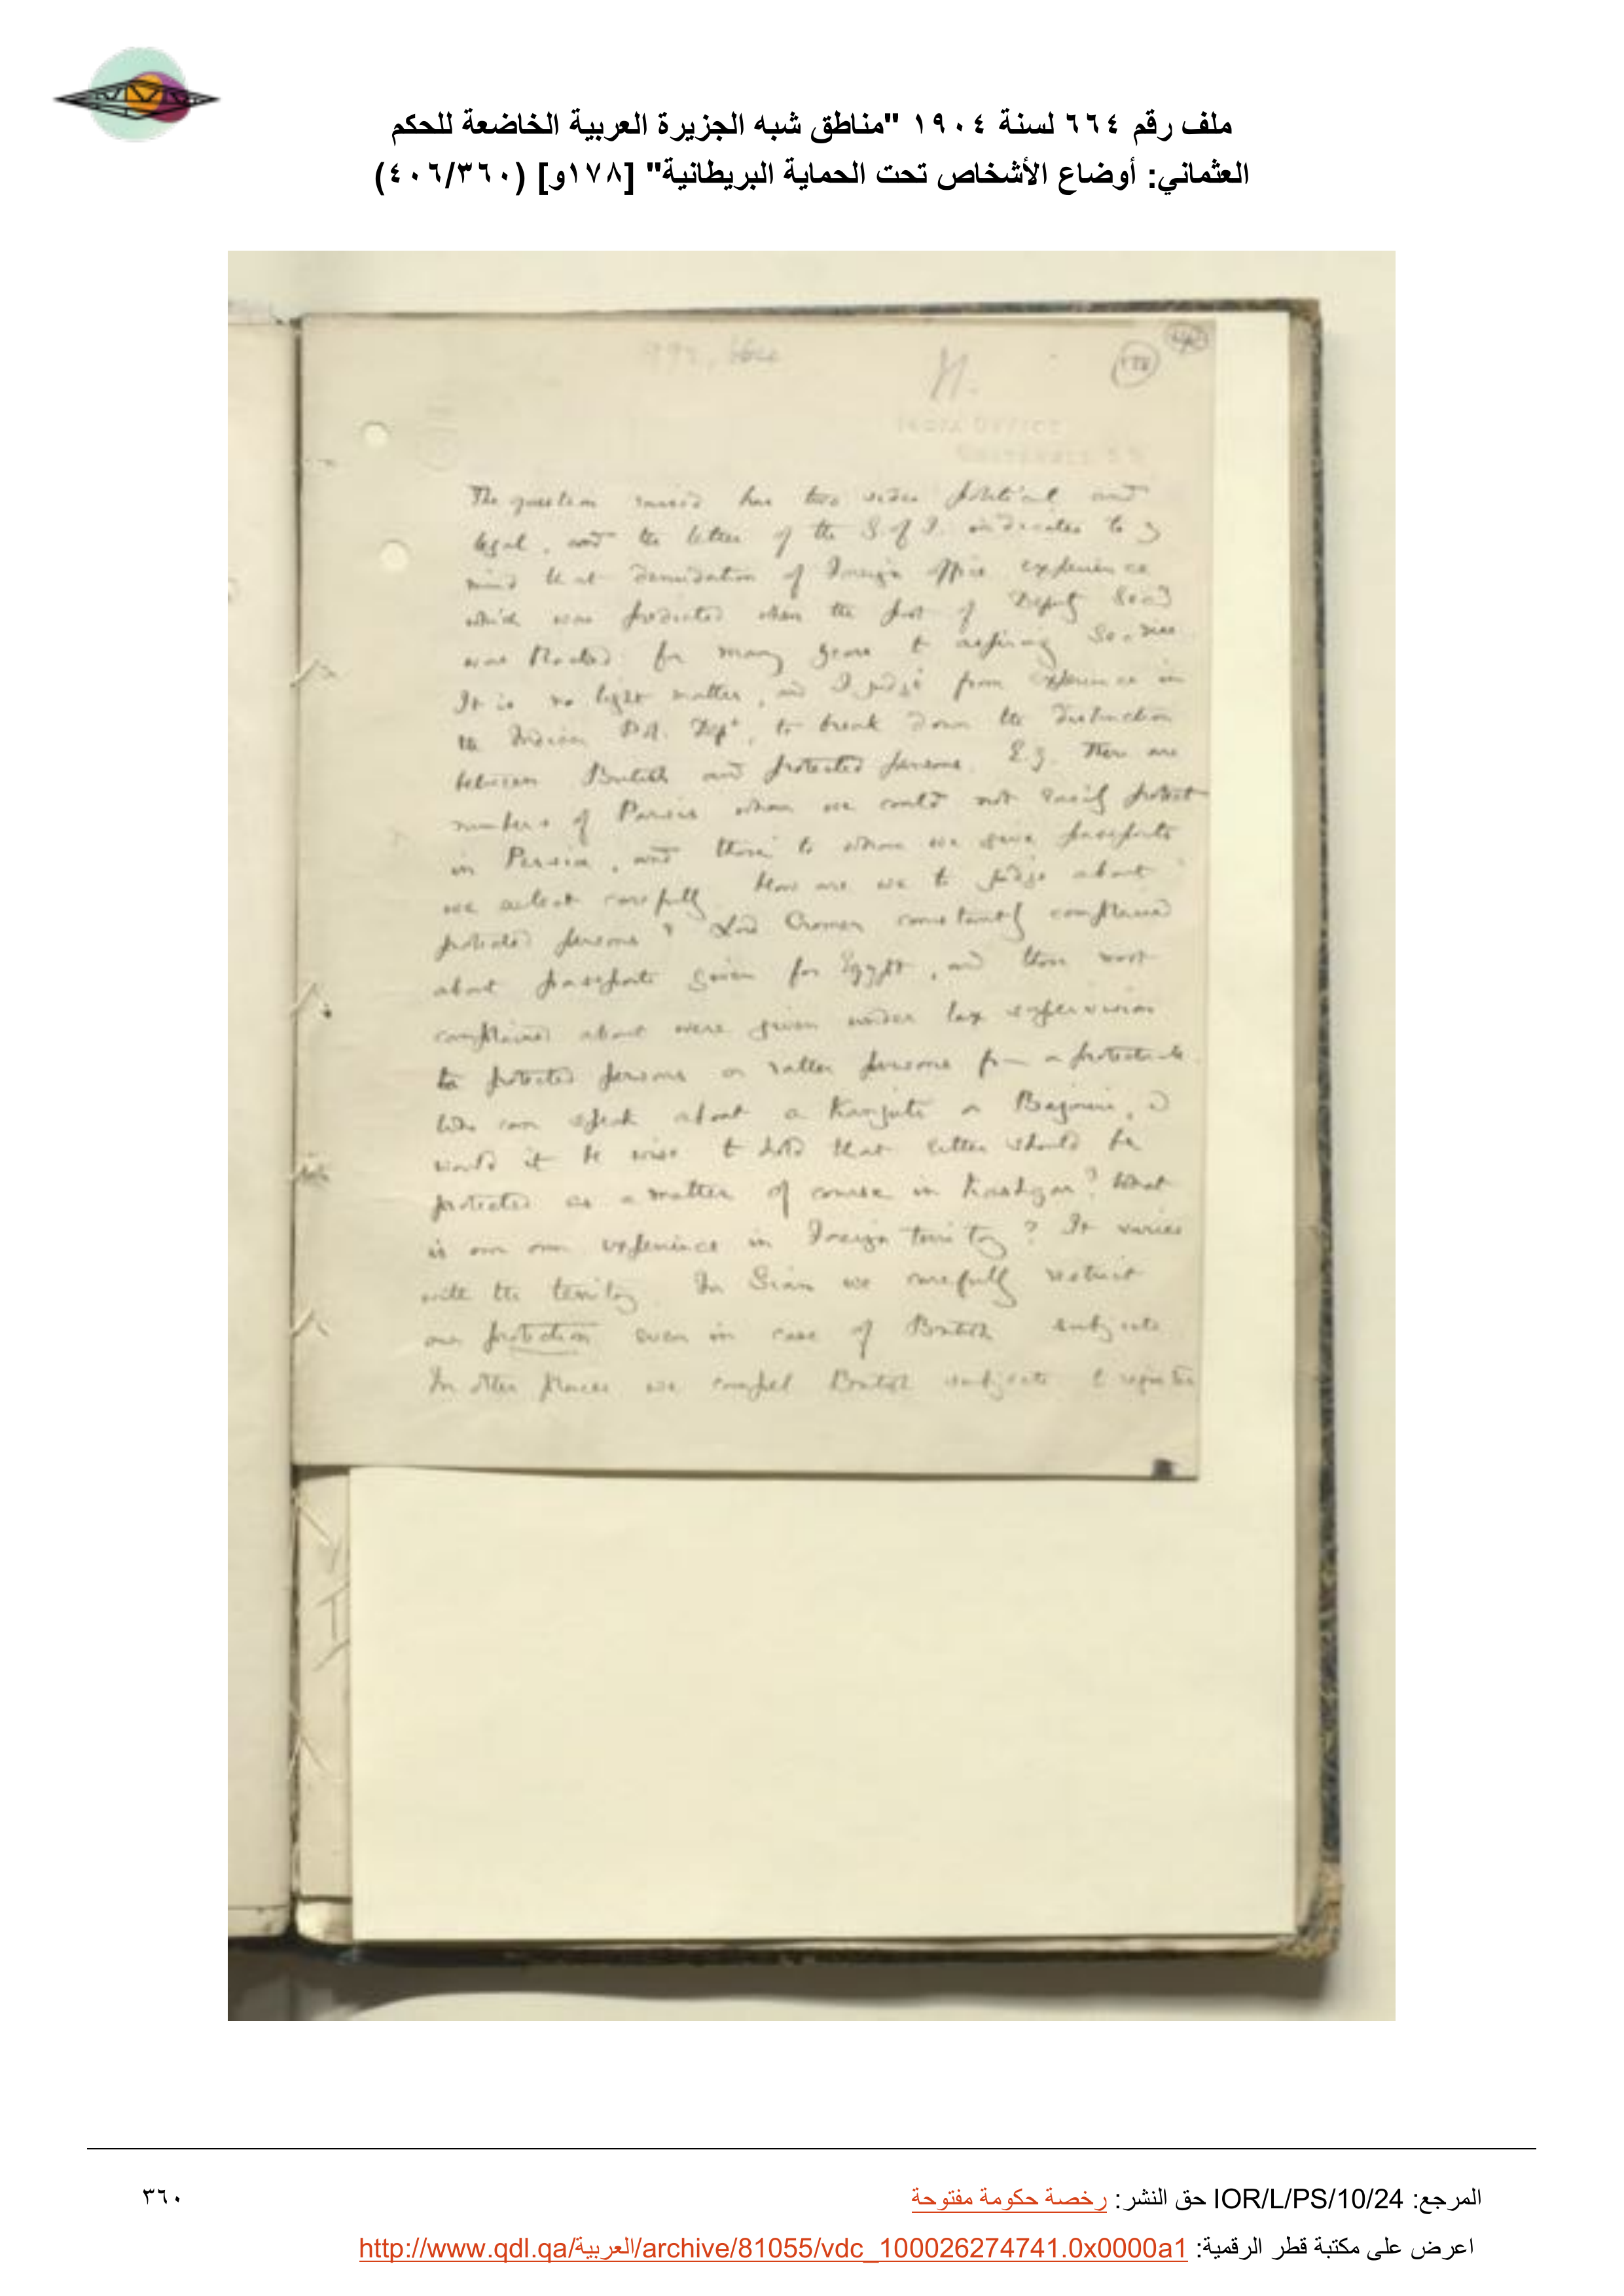 ملف رقم ٦٦٤ لسنة ١٩٠٤ "مناطق شبه الجزيرة العربية الخاضعة للحكم
العثماني: أوضاع الأشخاص تحت الحماية البريطانية" [١٧٨و] (٤٠٦/٣٦٠)
178
INDIA OFFICE
WHITEHALL S W
The question raised has two sides political and
legal, and the letter of the G. of I. indicates to my
mind that denudation of Foreign Office experience
which was predicted when the post of Deputy Secy
was blocked for many years to aspiring
It is no light matter, as I judge from experience in
the Indian Dept, to break down the distinction
between British and protected persons. E.g. There are
numbers of Parsis whom we could not easily protect
in Persia, and those to whom we give passports
we select carefully. How are we to judge about
protected persons? Lord Cromer constantly complained
about passports given for Egypt, and those most
complained about were given under lax supervision
to protected persons or rather persons from a protectorate
Who can speak about a Kanjuti or Bajouri, &
would it be wise to hold that either should be
protected as a matter of course in Kashgar? What
is our own experience in Foreign territory? It varies
with the territory. In Siam we carefully restrict
our protection even in case of British subjects
In other places we compel British subjects to register
المرجع: IOR/L/PS/10/24 حق النشر: رخصة حكومة مفتوحة
٣٦٠
اعرض على مكتبة قطر الرقمية: http://www.qdl.qa/العربية/archive/81055/vdc_100026274741.0x0000a1